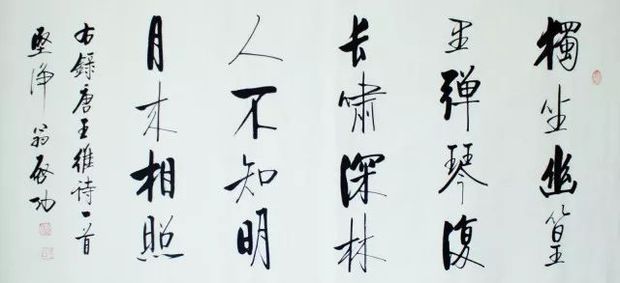 獨坐幽篁
里彈琴復
長嘯深林
人不知明
月来相照
右録唐王維诗一首
堅净翁啓功